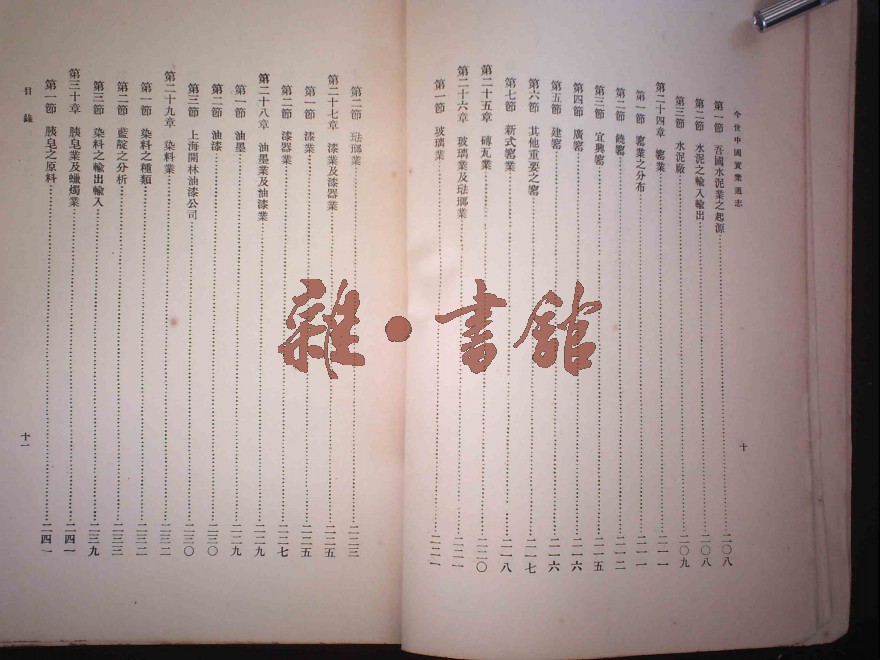 今世中國實業通志
第一節 吾國水泥業之起源 二〇八
第二節 水泥之輸入輸出 二〇八
第三節 水泥廠 二〇九
第二十四章 窰業 二一一
第一節 窰業之分布 二一一
第二節 饒窰 二一二
第三節 宜興窰 二一五
第四節 廣窰 二一六
第五節 建窰 二一六
第六節 其他重要之窰 二一七
第七節 新式窰業 二一八
第二十五章 磚瓦業 二二〇
第二十六章 玻璃業及琺瑯業 二二一
第一節 玻璃業 二二一
十
第二節 琺瑯業 二二三
第二十七章 漆業及漆器業 二二五
第一節 漆業 二二五
第二節 漆器業 二二七
第二十八章 油墨業及油漆業 二二九
第一節 油墨 二二九
第二節 油漆 二三〇
第三節 上海開林油漆公司 二三〇
第二十九章 染料業 二三二
第一節 染料之種類 二三二
第二節 藍靛之分析 二三三
第三節 染料之輸出輸入 二三九
第三十章 胰皂業及蠟燭業 二四一
第一節 胰皂之原料 二四一
目錄
十一
雜·書館